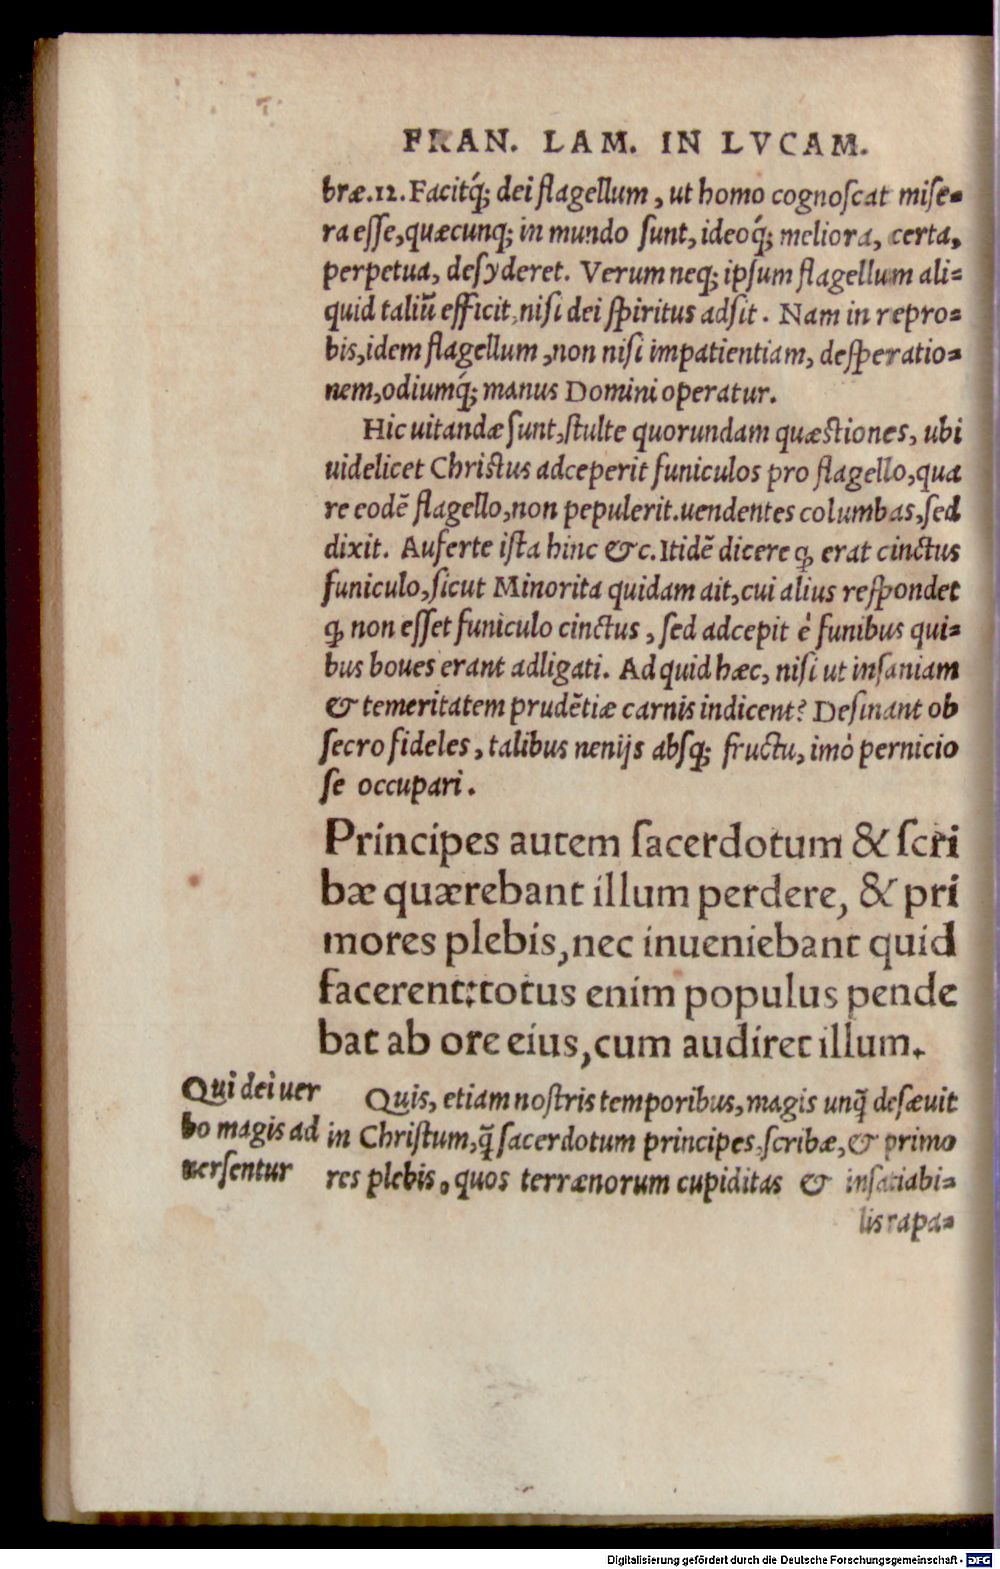 FRAN. LAM. IN LVCAM.
bræ.12. Facitq́; dei flagellum, ut homo cognoscat mise-
ra esse, quæcunq; in mundo sunt, ideoq́; meliora, certa,
perpetua, desyderet. Verum neq; ipsum flagellum ali-
quid taliũ efficit, nisi dei spiritus adsit. Nam in repro-
bis, idem flagellum, non nisi impatientiam, desperatio-
nem, odiumq́; manus Domini operatur.
Hic uitandæ sunt, stulte quorundam quæstiones, ubi
uidelicet Christus adceperit funiculos pro flagello, qua
re eodẽ flagello, non pepulerit. uendentes columbas, sed
dixit. Auferte ista hinc &c. Itidẽ dicere ꝙ erat cinctus
funiculo, sicut Minorita quidam ait, cui alius respondet
ꝙ non esset funiculo cinctus, sed adcepit è funibus qui-
bus boues erant adligati. Ad quid hæc, nisi ut insaniam
& temeritatem prudẽtiæ carnis indicent? Desinant ob
secro fideles, talibus nenijs absq; fructu, imò pernicio
se occupari.
Principes autem sacerdotum & scri
bæ quærebant illum perdere, & pri
mores plebis, nec inueniebant quid
facerent: totus enim populus pende
bat ab ore eius, cum audiret illum.
Qui dei uer
bo magis ad
uersentur
Quis, etiam nostris temporibus, magis unq̃ desæuit
in Christum, q̃ sacerdotum principes, scribæ, & primo
res plebis, quos terrænorum cupiditas & insatiabi-
lis rapa-
Digitalisierung gefördert durch die Deutsche Forschungsgemeinschaft - DFG